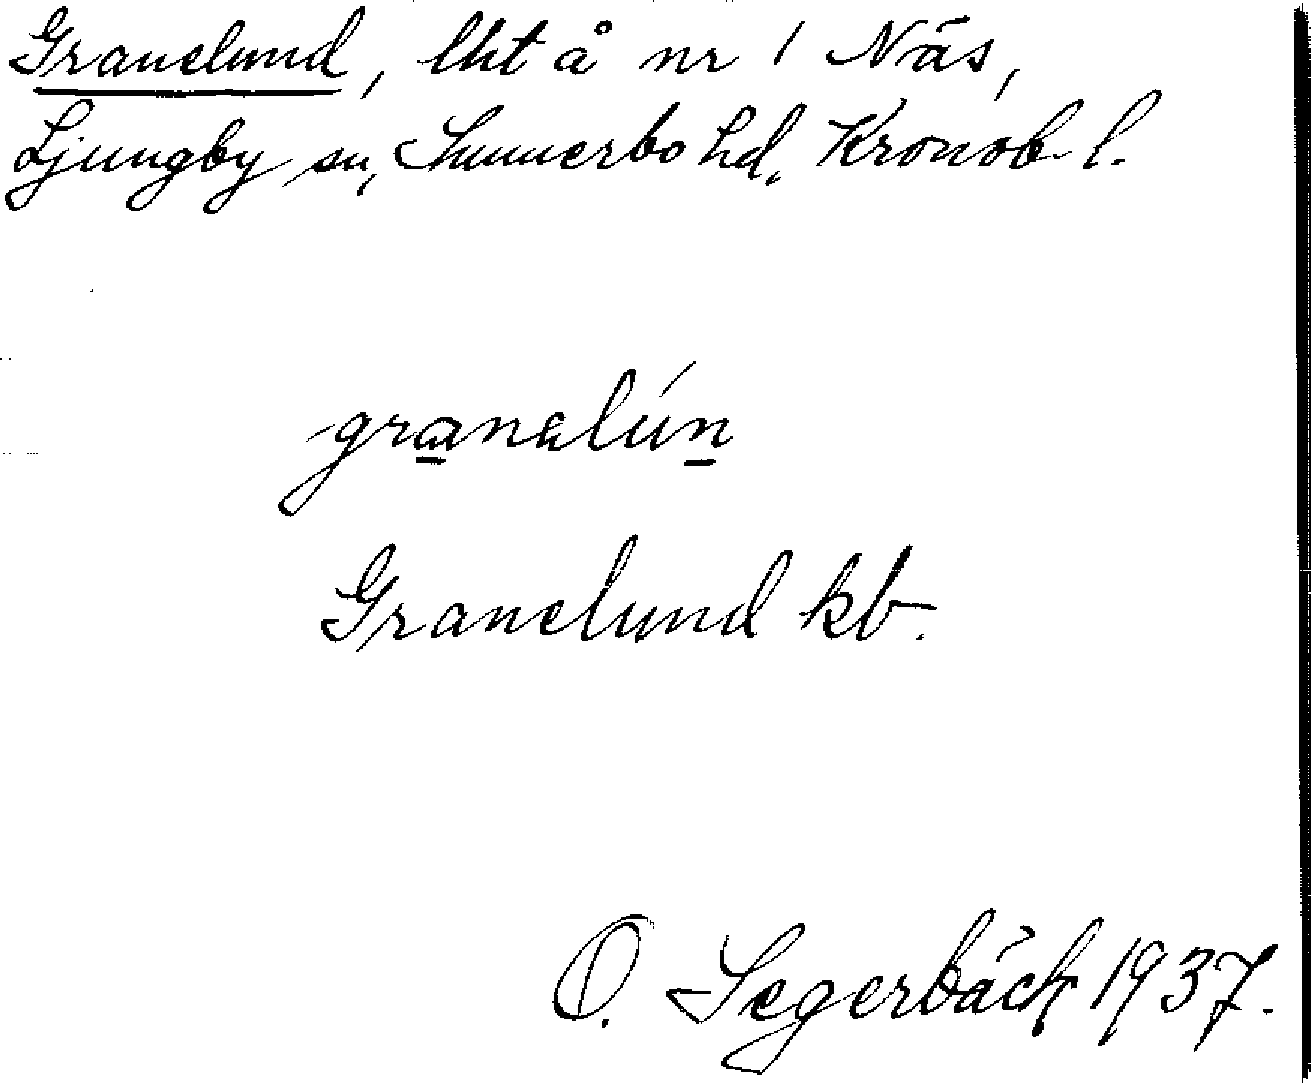 Granelund, lht å nr 1 Näs,
Ljungby sn, Sunnerbo hd, Kronob. l.
granelún
Granelund kb.
O. Segerbäck 1937.